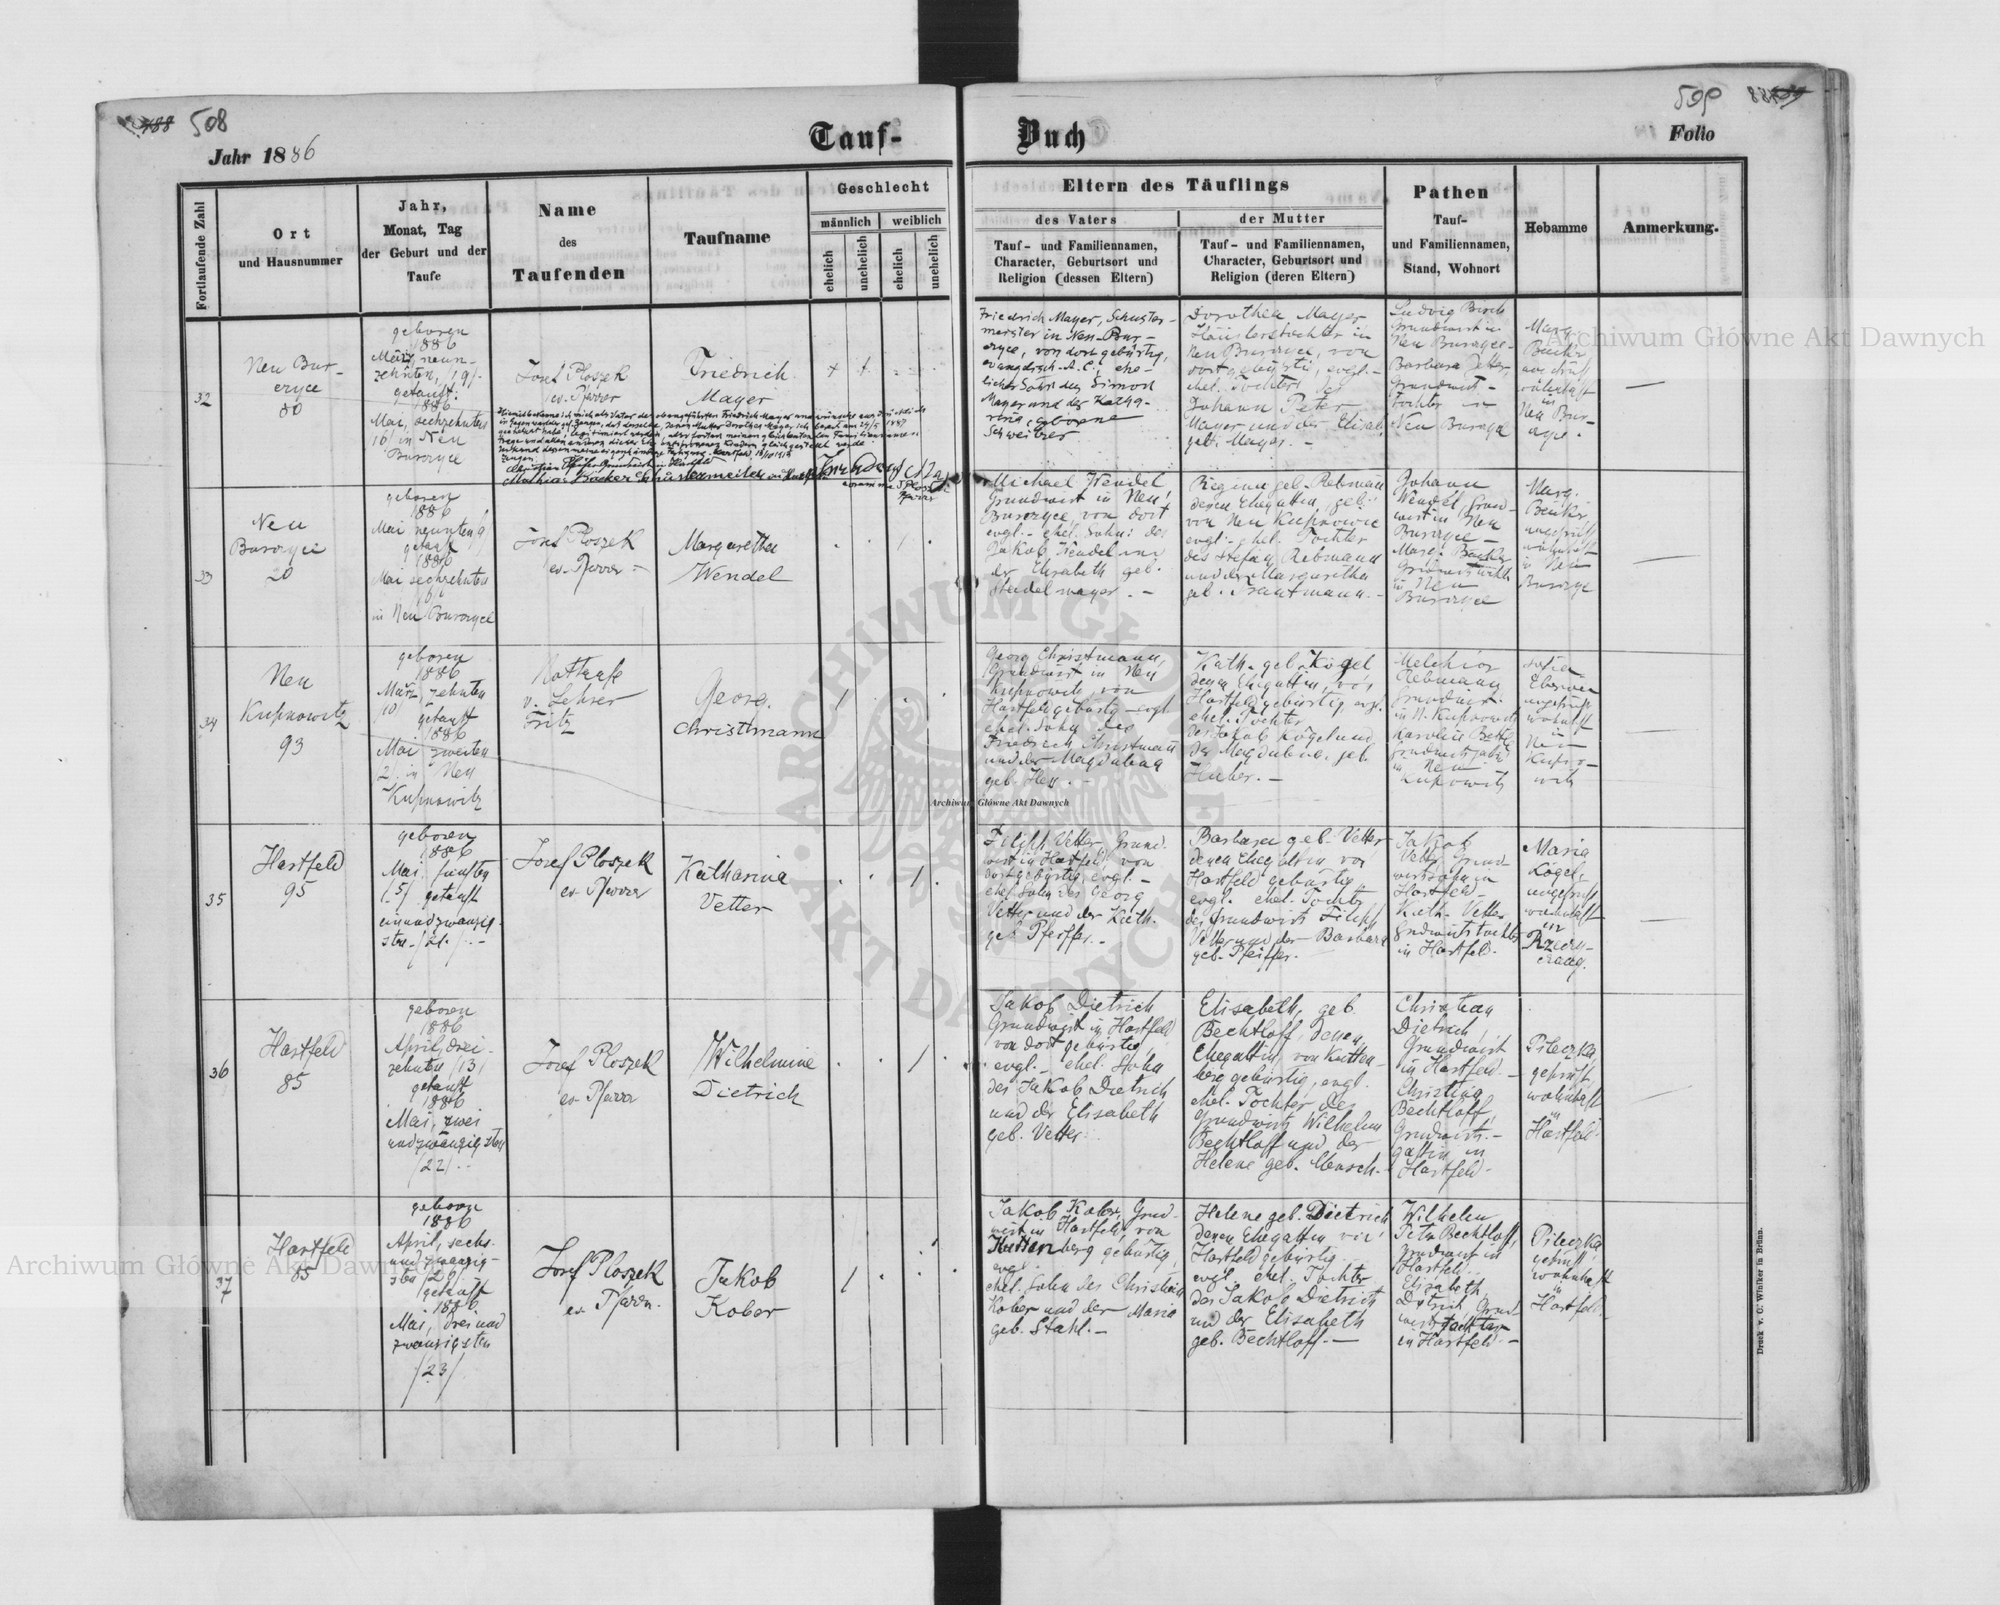 508
509
Jahr 1886
Tauf-
Buch
Folio
Fortlaufende Zahl
Ort
und Hausnummer
Jahr,
Monat, Tag
der Geburt und der
Taufe
Name
des
Taufenden
Taufname
Geschlecht
männlich
weiblich
ehelich
unehelich
ehelich
unehelich
Eltern des Täuflings
des Vaters
Tauf- und Familiennamen,
Character, Geburtsort und
Religion (dessen Eltern)
der Mutter
Tauf- und Familiennamen,
Character, Geburtsort und
Religion (deren Eltern)
Pathen
Tauf-
und Familiennamen,
Stand, Wohnort
Hebamme
Anmerkung.
32
Neu Bur-
czyce
80
geboren
1886
März neun-
zehnten, /19/.
getauft:
1886
Mai, sechzehnten
16 in Neu
Burczyce
Josef Ploszek
ev. Pfarrer
Friedrich
Mayer
Friedrich Mayer, Schuster-
meister in Neu-Bur-
czyce, von dort gebürtig,
evangelisch A. C., ehe-
licher Sohn des Simon
Mayer und der Katha-
rina, geborene
Schweitzer
Dorothea Mayer
Häuslerstochter in
Neu Burczyce, von
dort gebürtig, evgl. -
ehel. Tochter des
Johann Peter
Mayer und der Elisab.
geb. Mayer. -
Ludwig
Grundwirt in
Neu Burczyce -
Barbara Vetter,
Grundwirt-
Tochter in
Neu Burczyce
Marg.
wohnhaft
in
Neu Bur-
czyce.
33
Neu
Burczyce
20
geboren
1886
Mai neunten /9/
getauft
1886
Mai sechzehnten
/16/
in Neu-Burczyce
Josef Ploszek
ev. Pfarrer -
Margaretha
Wendel
Michael Wendel
Grundwirt in Neu
Burczyce von dort
evgl. - ehel. Sohn des
Jakob Wendel und
der Elisabeth geb.
Stadelmayer. -
Regina geb. Rebmann
dessen Ehegattin, geb.
von Neu Kupnowice
evgl. ehel. Tochter
des Stefan Rebmann
und der Margaretha
geb. Trautmann. -
Johann
Wendel, Grund-
wirt in Neu
Burczyce -
Marg.
in Neu
Burczyce
Marg.
wohnhaft
in Neu
Burczyce
34
Neu
Kupnowitz
93
geboren
1886
März zehnten
/10/
getauft
1886
Mai zweiten
2. in Neu
Kupnowitz
Nottaufe
v. Lehrer
Fritz
Georg
Christmann
Georg Christmann,
Grundwirt in Neu
Kupnowitz, von
Hartfeld gebürtig - evgl
ehel. Sohn des
Friedrich Christmann
und der Magdalena
geb. Hess. -
Kath. geb. Kögel
denen Ehegattin, von
Hartfeld gebürtig, evgl.
ehel. Tochter
des Jakob Kögel und
der Magdalena, geb.
Huber. -
Melchior
Rebmann
Grundwirt
in N. Kupnowitz
Karolin
in Neu
Kupnowitz
wohnhaft
in
Neu
Kupno-
witz
35
Hartfeld
95
geboren
1886
Mai fünften
/5/ getauft
einundzwanzig-
sten. /21./. -
Josef Ploszek
ev. Pfarrer
Katharina
Vetter
Filipp Vetter Grund-
wirt in Hartfeld, von
dort gebürtig, evgl. -
ehel. Sohn des Georg
Vetter und der Kath.
geb. Pfeiffer. -
Barbara geb. Vetter
denen Ehegattin von
Hartfeld gebürtig
evgl. ehel. Tochter
des Grundwirts Filipp
Vetter und der Barbara
geb. Pfeiffer. -
Jakob
Vetter Grund-
wirtssohn in
Hartfeld -
Kath. Vetter
Grundwirtstochter
in Hartfeld.
Maria
Kögel,
ungeprüft
wohnhaft
in
36
Hartfeld
85
geboren
1886
April, drei-
zehnten /13/
getauft
1886
Mai, zwei
undzwanzigsten
/22/. -
Josef Ploszek
ev. Pfarrer
Wilhelmine
Dietrich
Jakob Dietrich
Grundwirt in Hartfeld
von dort gebürtig,
evgl. - ehel. Sohn
des Jakob Dietrich
und der Elisabeth
geb. Vetter.
Elisabeth, geb.
Bechtloff, denen
Ehegattin, von Kutten-
berg gebürtig, evgl.
ehel. Tochter des
Grundwirts Wilhelm
Bechtloff und der
Helene geb. Mensch. -
Christian
Dietrich,
Grundwirt
in Hartfeld. -
Christina
Bechtloff,
Grundwirts-
gattin in
Hartfeld -
Pileczka,
geprüft,
wohnhaft
in
Hartfeld.
37
Hartfeld
85
geboren
1886
April, sechs-
undzwanzig-
sten /26/
getauft
1886
Mai, drei und
zwanzigsten
/23/
Josef Ploszek
ev. Pfarrer.
Jakob
Kober
Jakob Kober, Grund-
wirt in Hartfeld, von
Kuttenberg gebürtig,
evgl.
ehel. Sohn des Christian
Kober und der Maria
geb. Stahl. -
Helene geb. Dietrich
denen Ehegattin von
Hartfeld gebürtig -
evgl. ehel. Tochter
des Jakob Dietrich
und der Elisabeth
geb. Bechtloff. -
Wilhelm
Peter Bechtloff,
Grundwirt in
Hartfeld. -
Elisabeth
Dietrich, Grund-
wirtstochter
in Hartfeld -
Pileczka
geprüft
wohnhaft
in
Hartfeld.
Druck v. C. Winiker in Brünn.
Archiwum Główne Akt Dawnych
Archiwum Główne Akt Dawnych
Archiwum Główne Akt Dawnych
ARCHIWUM GŁÓWNE AKT DAWNYCH